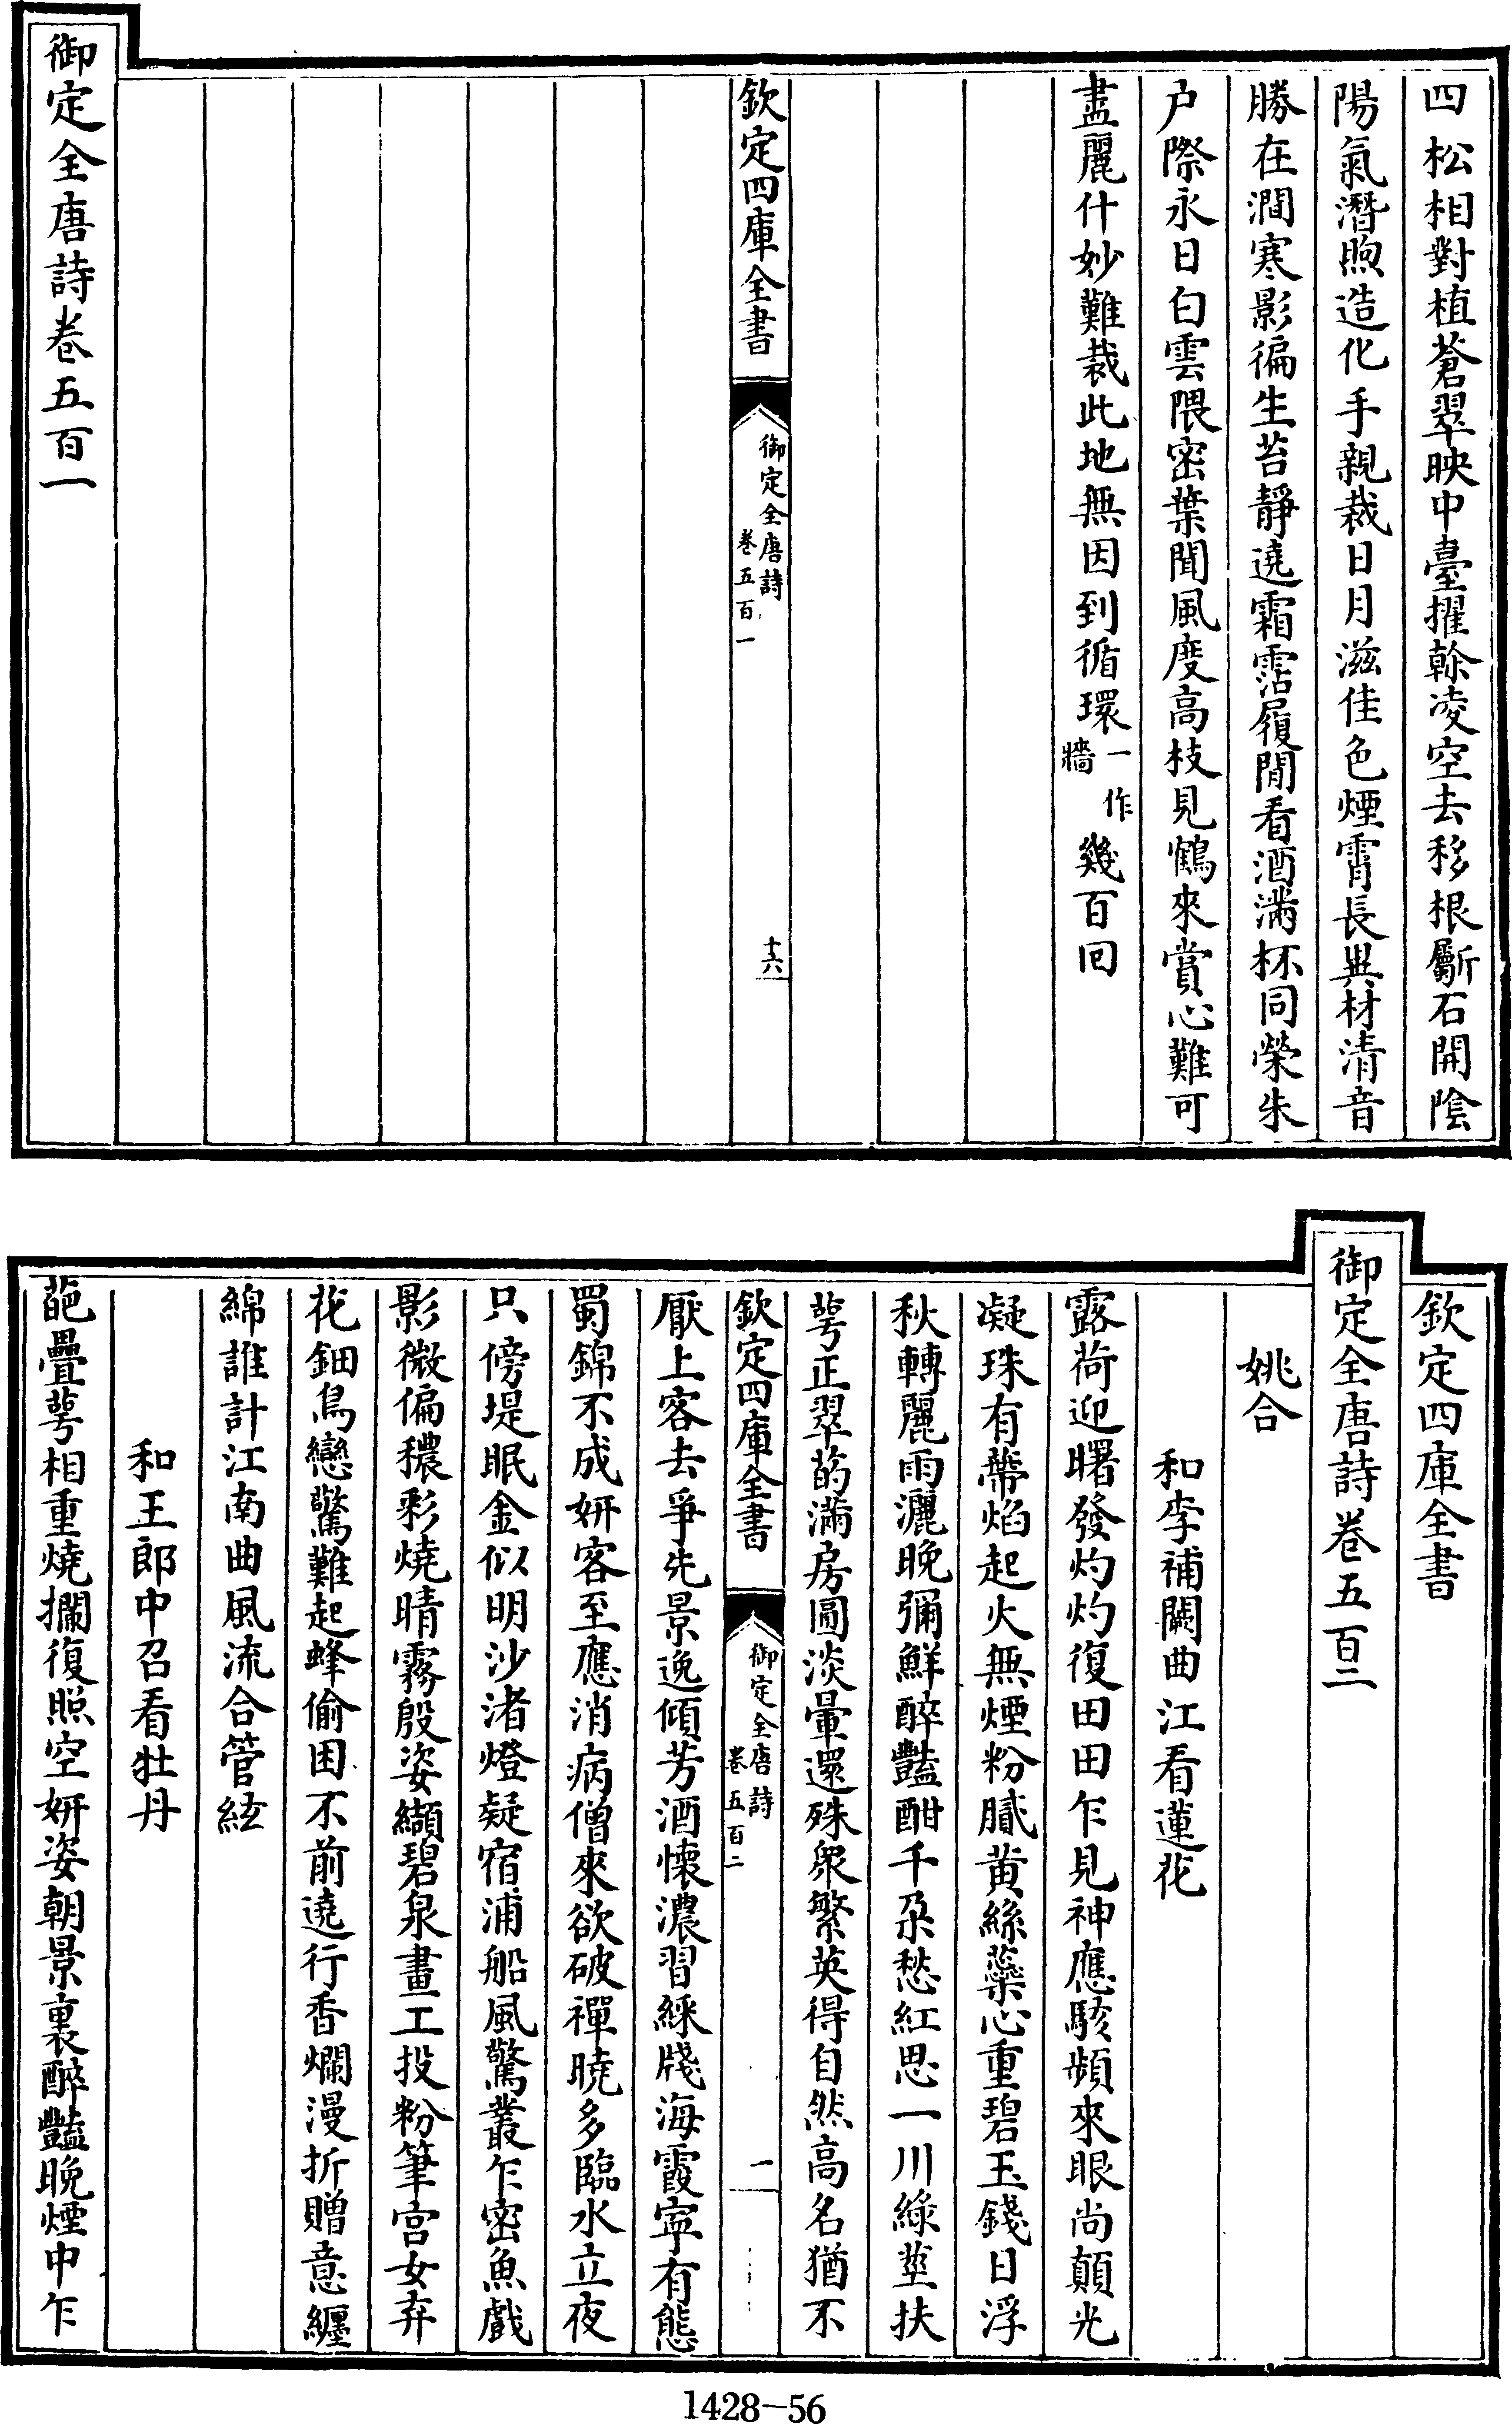 四松相對植蒼翠映中臺擢榦凌空去移根斸石開陰
陽氣潛煦造化手親裁日月滋佳色煙霄長異材清音
勝在澗寒影徧生苔靜遶霜霑履閒看酒滿杯同榮朱
户際永日白雲隈密葉聞風度高枝見鶴來賞心難可
盡麗什妙難裁此地無因到循環一作牆幾百回
欽定四庫全書
御定全唐詩
卷五百一
十六
御定全唐詩卷五百一
欽定四庫全書
御定全唐詩卷五百二
姚合
和李補闕曲江看蓮花
露荷迎曙發灼灼復田田乍見神應駭頻來眼尚顛光
凝珠有蔕焰起火無煙粉膩黄絲蘂心重碧玉錢日浮
秋轉麗雨灑晚彌鮮醉豔酣千朶愁紅思一川綠莖扶
萼正翠菂滿房圓淡暈還殊衆繁英得自然高名猶不
欽定四庫全書
御定全唐詩
卷五百二
一
厭上客去爭先景逸傾芳酒懷濃習綵牋海霞寧有態
蜀錦不成妍客至應消病僧來欲破禪曉多臨水立夜
只傍堤眠金似明沙渚燈疑宿浦船風驚叢乍密魚戲
影微偏穠彩燒晴霧殷姿纈碧泉畫工投粉筆宫女弃
花鈿鳥戀驚難起蜂偷困不前遶行香爛漫折贈意纏
綿誰計江南曲風流合管絃
和王郎中召看牡丹
葩疊萼相重燒攔復照空妍姿朝景裏醉豔晚煙中乍
1428-56